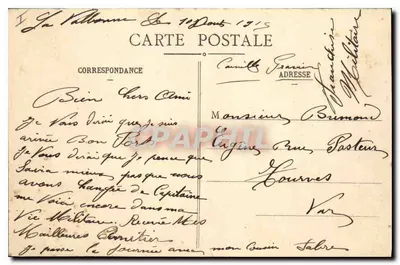 La Valbonne le 10 Août 1915
CARTE POSTALE
CORRESPONDANCE
ADRESSE
Camille
Franchise
Militaire
Bien chers Amis
je Vous dirai que je suis
arrivé Bon Port
je Vous dirai que je pense que
Savia mieux pasque nous
avons changée de Capitaine
me Voici encore dans ma
Vie Militaire. Recevez Mes
Meilleures
je passe la journée avec mon cousin Fabre
Monsieur Brumond
Rue Pasteur
Tourves
Var
CPARTICHE